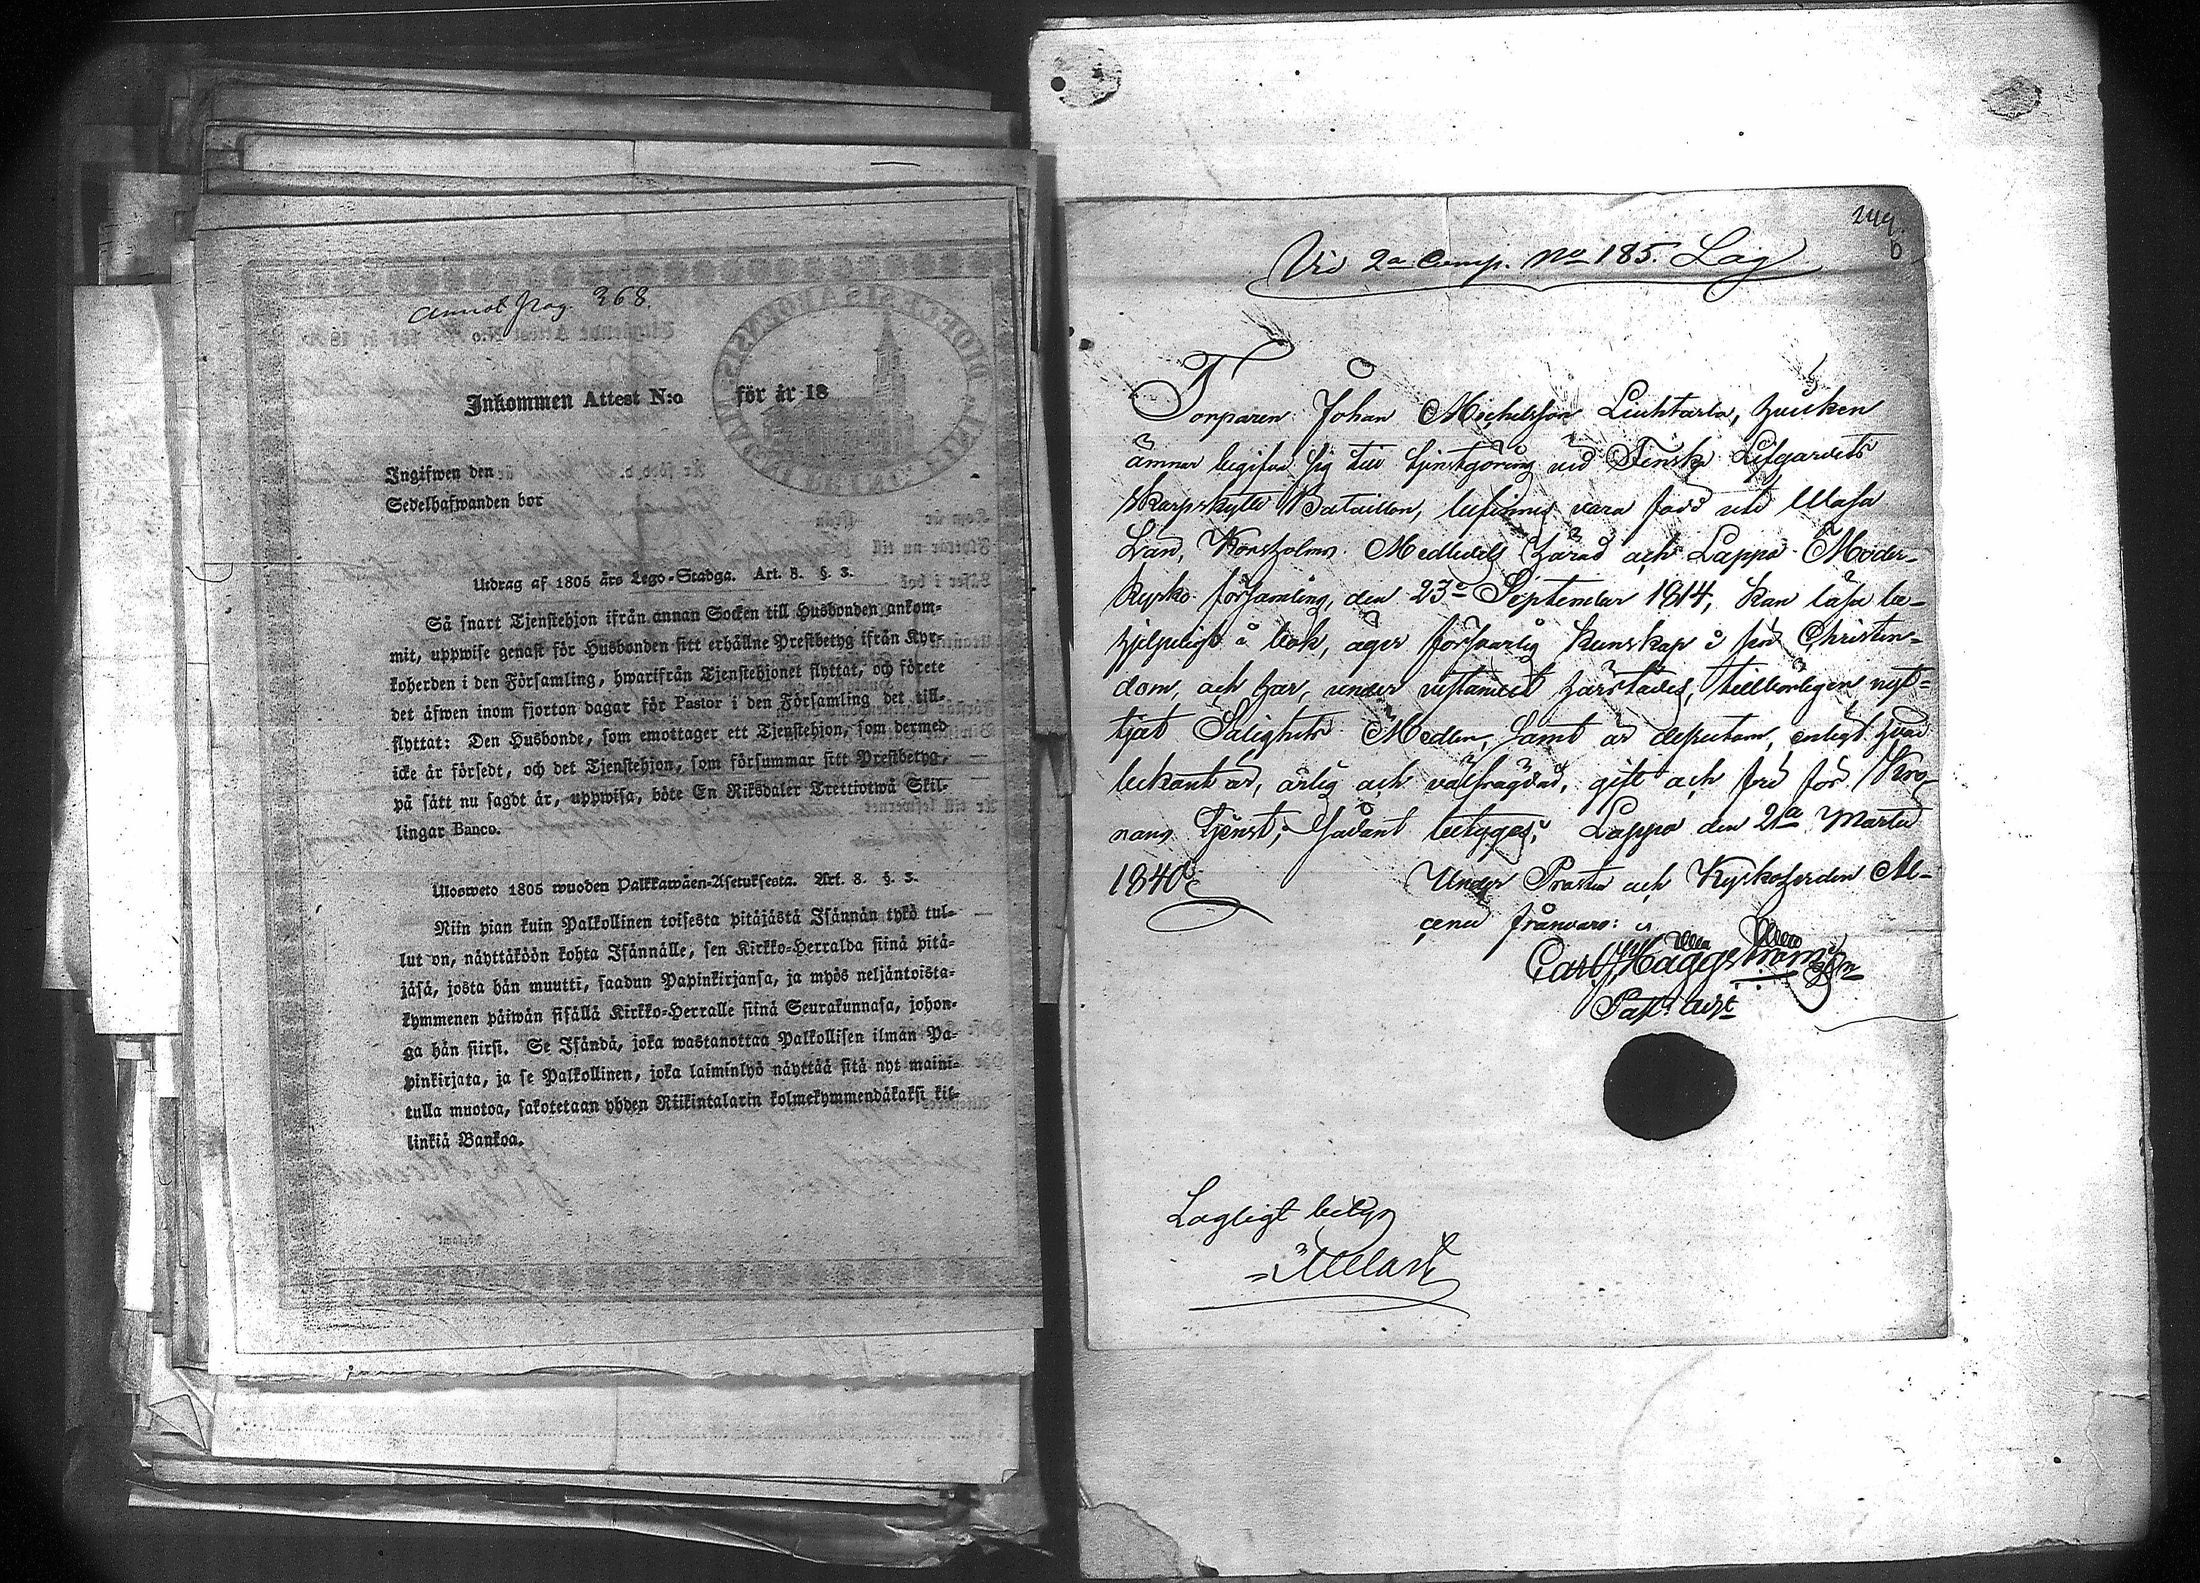 Annot pag. 368.
Inkommen Attest N:o för år 18
Ingifwen den
Sedelhafwanden bor
Utdrag af 1805 års Lego-Stadga. Art. 8. §. 3.
Så snart Tjenstehjon ifrån annan Socken till Husbonden ankom-
mit, uppwise genast för Husbonden sitt erhållne Prestbetyg ifrån Kyr-
koherden i den Församling, hwarifrån Tjenstehjonet flyttat, och förete
det äfwen inom fjorton dagar för Pastor i den Församling det till-
flyttat: Den Husbonde, som emottager ett Tjenstehjon, som dermed
icke är försedt, och det Tjenstehjon, som försummar sitt Prestbetyg,
på sätt nu sagdt är, uppwisa, böte En Riksdaler Trettiotwå Skil-
lingar Banco.
Ulosweto 1805 wuoden Palkkawäen-Asetuksesta. Art. 8. §. 3.
Niin pian kuin Palkollinen toisesta pitäjästä Isännän tykö tul-
lut on, näyttäköön kohta Isännälle, sen Kirkko-Herralda siinä pitä-
jäsä, josta hän muutti, saadun Papinkirjansa, ja myös neljäntoista-
kymmenen päiwän sisällä Kirkko-Herralle siinä Seurakunnasa, johon-
ga hän siirsi. Se Isändä, joka wastanottaa Palkollisen ilman Pa-
pinkirjata, ja se Palkollinen, joka laiminlyö näyttää sitä nyt maini-
tulla muotoa, sakotetaan yhden Riikintalarin kolmekymmendäkaksi kil-
linkiä Bankoa.
249.
b
Vid 2a Comp. No 185. Lag
Torparen Johan Michelsson Liuhtarla, hvilken
ämnar begifva sig till tjenstgöring vid Finska Lifgardets
Skarpskytte Bataillon, befinnes vara född uti Wasa
Län, Korsholms Medledels härad och Lappo Moder-
kyrko församling, den 23e September 1814, kan läsa be-
hjelpeligt i bok, äger försvarlig kunskap i sin Christen-
dom, och har, under vistandet härstädes, tillbörligen nytt-
jat Salighets Medlen, samt är dessutom, enligt hvad
bekant är, ärlig och välfrägdad, gift och fri för Kro-
nans tjenst; Sådant betygas; Lappo den 21a Martii
1840.
Under Prosten och Kyrkoherden Al-
ceni frånvaro:
Carl Häggström
Past: Adjt
Lagligt betyg